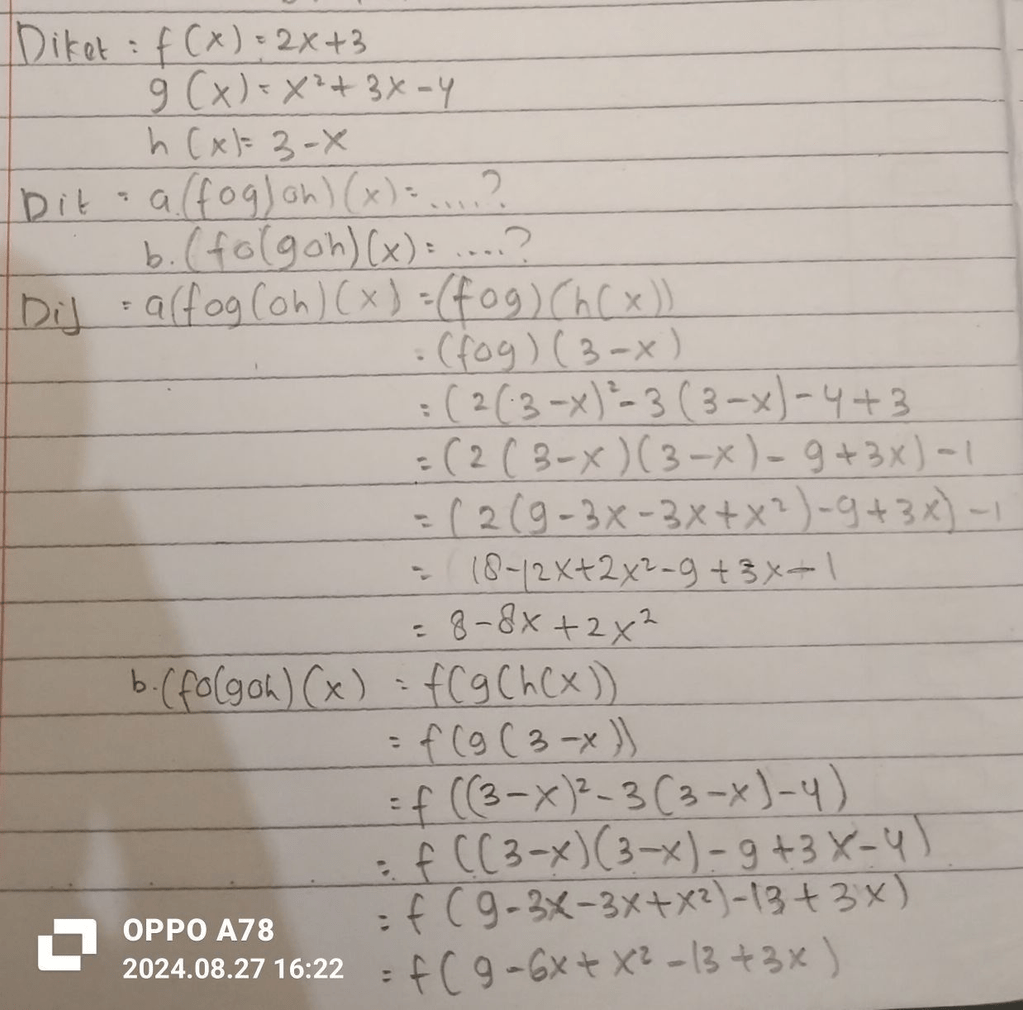 Diket : f(x) = 2x+3
g(x) = x²+3x-4
h(x) = 3-x
Dit = a.(fog)oh)(x) = .....?
b.(fo(goh)(x) = ....?
Dij = a(fog(oh)(x) = (fog)(h(x))
= (fog)(3-x)
= (2(3-x)²-3(3-x)-4+3
= (2(3-x)(3-x)-9+3x)-1
= (2(9-3x-3x+x²)-9+3x)-1
= 18-12x+2x²-9+3x-1
= 8-8x+2x²
b.(fo(goh)(x) = f(g(h(x))
= f(g(3-x))
= f((3-x)²-3(3-x)-4)
= f((3-x)(3-x)-9+3x-4)
= f(9-3x-3x+x²)-13+3x)
= f(9-6x+x²-13+3x)
OPPO A78
2024.08.27 16:22